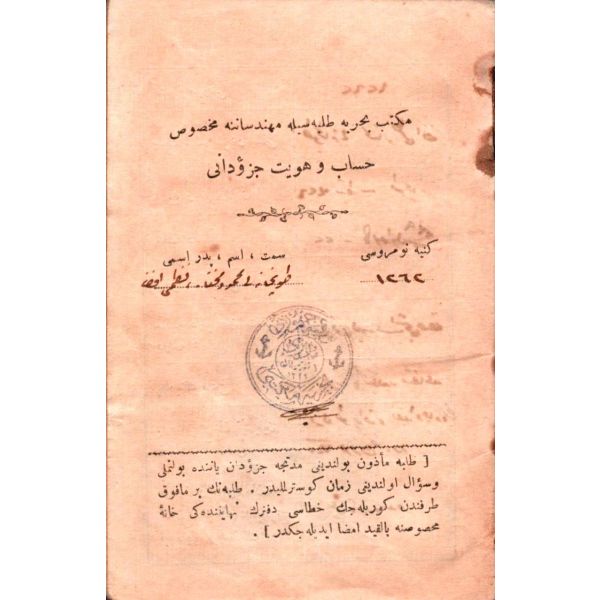 مكتب بحریه طلبه‌سیله مهندساننه مخصوص
حساب و هویت جزؤدانی
كنیه نومروسی
١٢٦٢
سمت ، اسم ، پدر اسمی
طوپخانه‌لی محمود مختار ،
[ طلبه مأذون بولندیغی مدتجه جزؤدان یاننده بولنملی
وسؤال اولندیغی زمان كوسترلملیدر . طلبه‌نك بر مافوق
طرفندن كوریله‌جك خطاسی دفترك نهایتنده‌كی خانۀ
مخصوصنه بالقید امضا ایدیله‌جكدر ] .